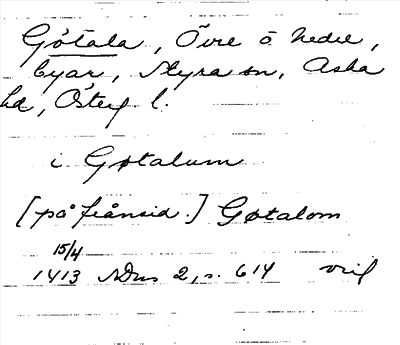 Götala, Övre o. nedre,
byar, Styra sn, Aska
hd, Österg l.
i Gøtalum
[på frånsid.] Gøtalom
15/4
1413 SDns 2, s. 614 orig